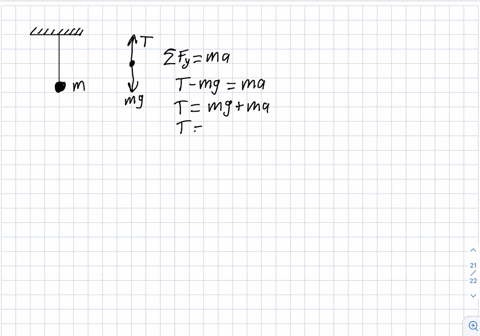 T
m
mg
ΣFy = ma
T - mg = ma
T = mg + ma
T =
21
/
22